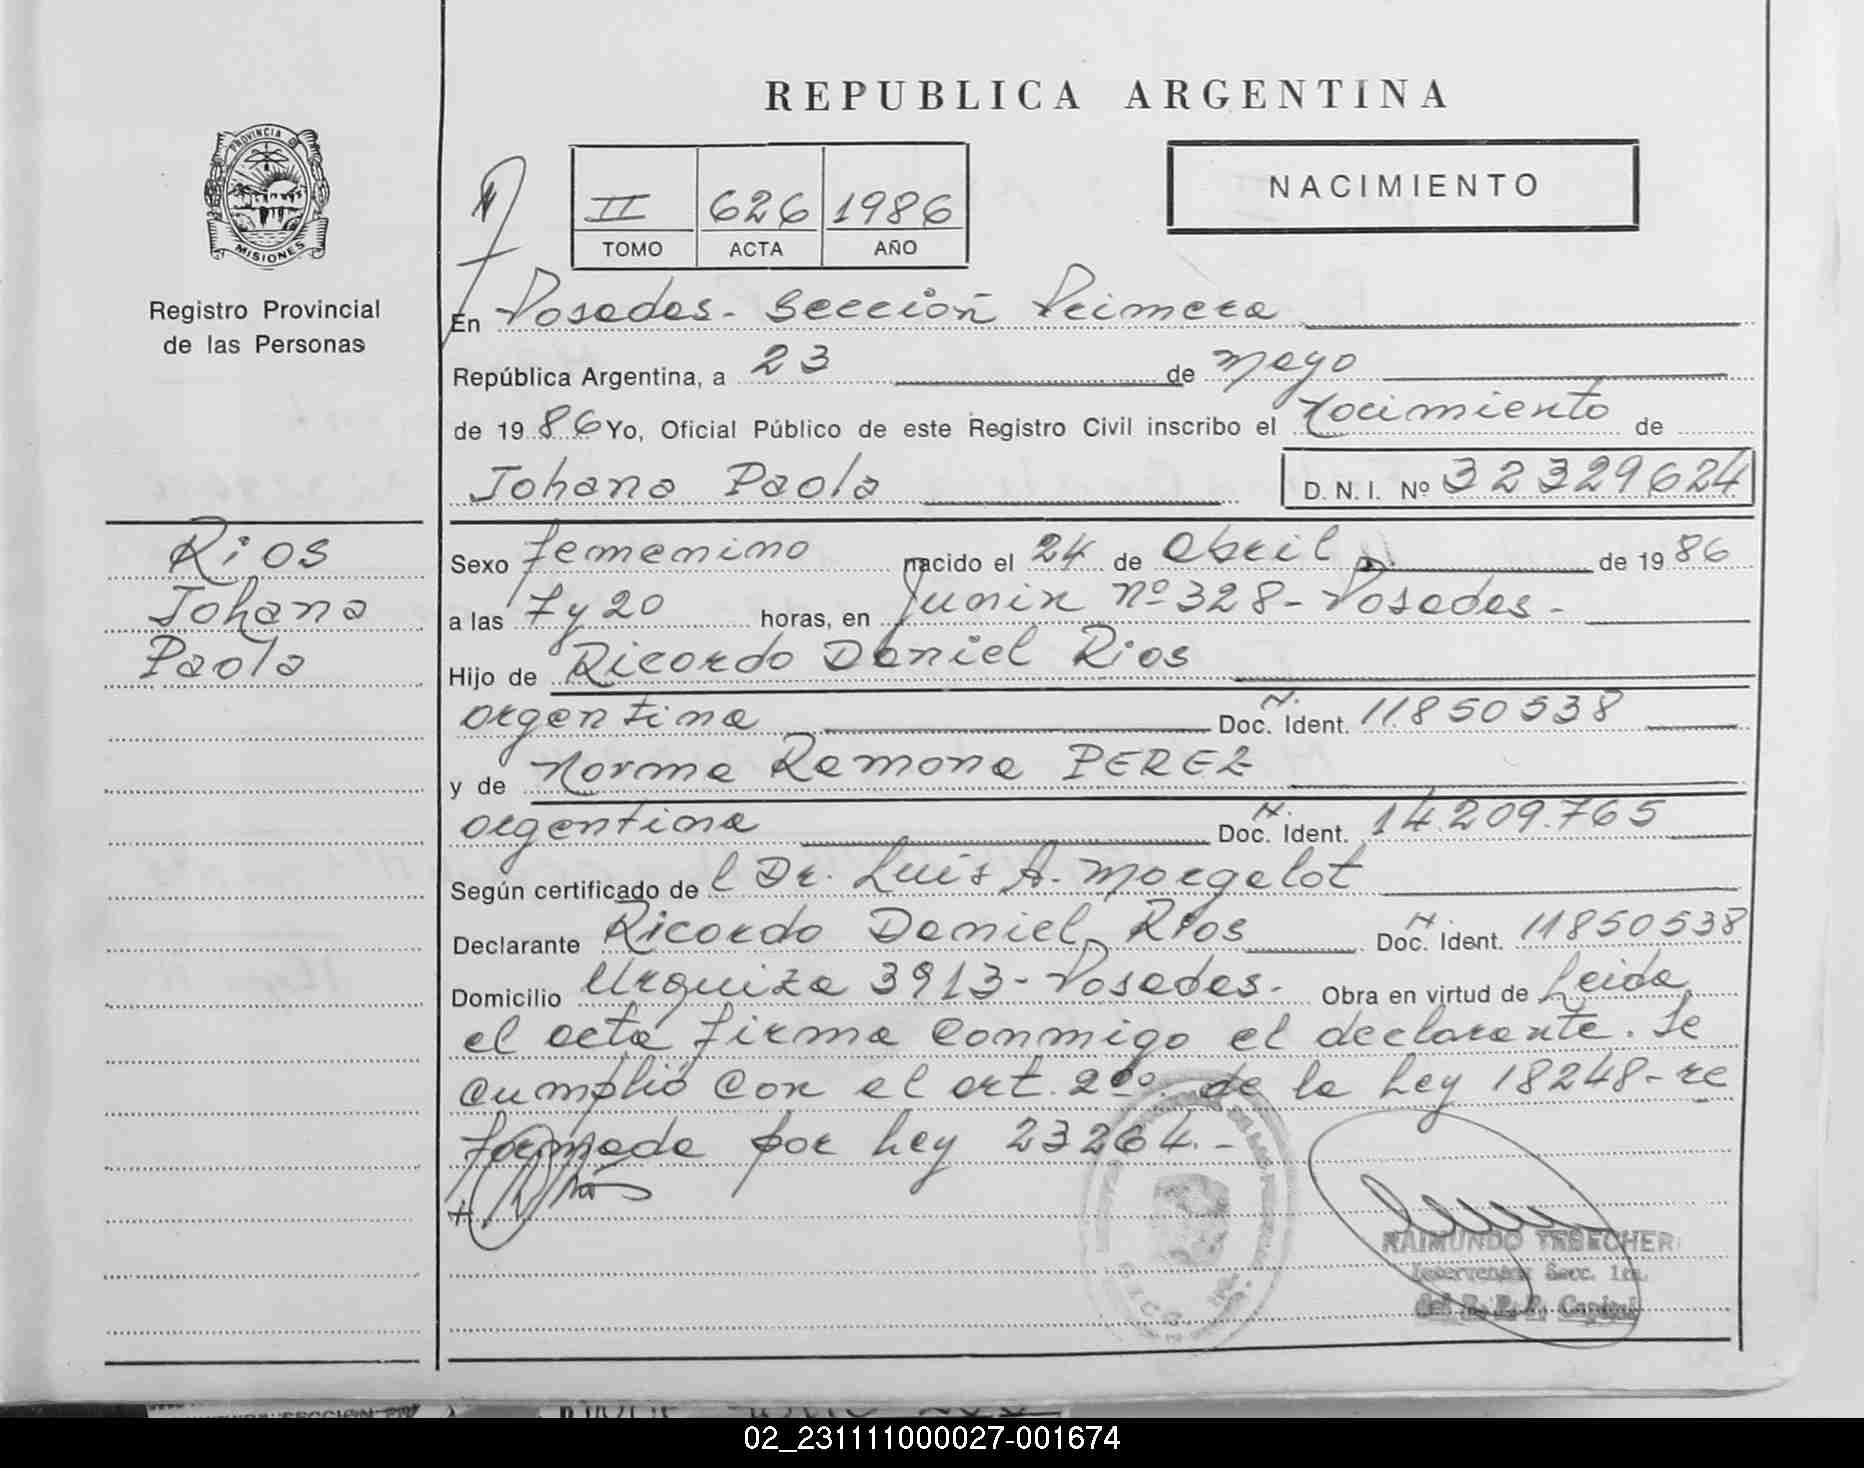 REPUBLICA ARGENTINA
PROVINCIA
MISIONES
Registro Provincial
de las Personas
II 626 1986
TOMO ACTA AÑO
NACIMIENTO
En Posadas - Sección Primera
República Argentina, a 23 de mayo
de 1986 Yo, Oficial Público de este Registro Civil inscribo el Nacimiento de
Johana Paola D. N. I. Nº 32329624
Rios
Johana
Paola
Sexo femenino nacido el 24 de Abril de 1986
a las 7 y 20 horas, en Junin nº 328 - Posadas -
Hijo de Ricardo Daniel Rios
argentina Doc. Ident. 11850538
y de Norma Ramona PEREZ
argentina Doc. Ident. 14.209.765
Según certificado de l Dr. Luis A. Morgelot
Declarante Ricardo Daniel Rios Doc. Ident. 11850538
Domicilio Urquiza 3913 - Posadas. Obra en virtud de Leida
el acta firma conmigo el declarante. Se
cumplió con el art. 2do de la Ley 18248 - re
formada por Ley 23264. -
RAIMUNDO TEBECHER
Secc. 1ra.
del R. P. P. Capital
02_231111000027-001674